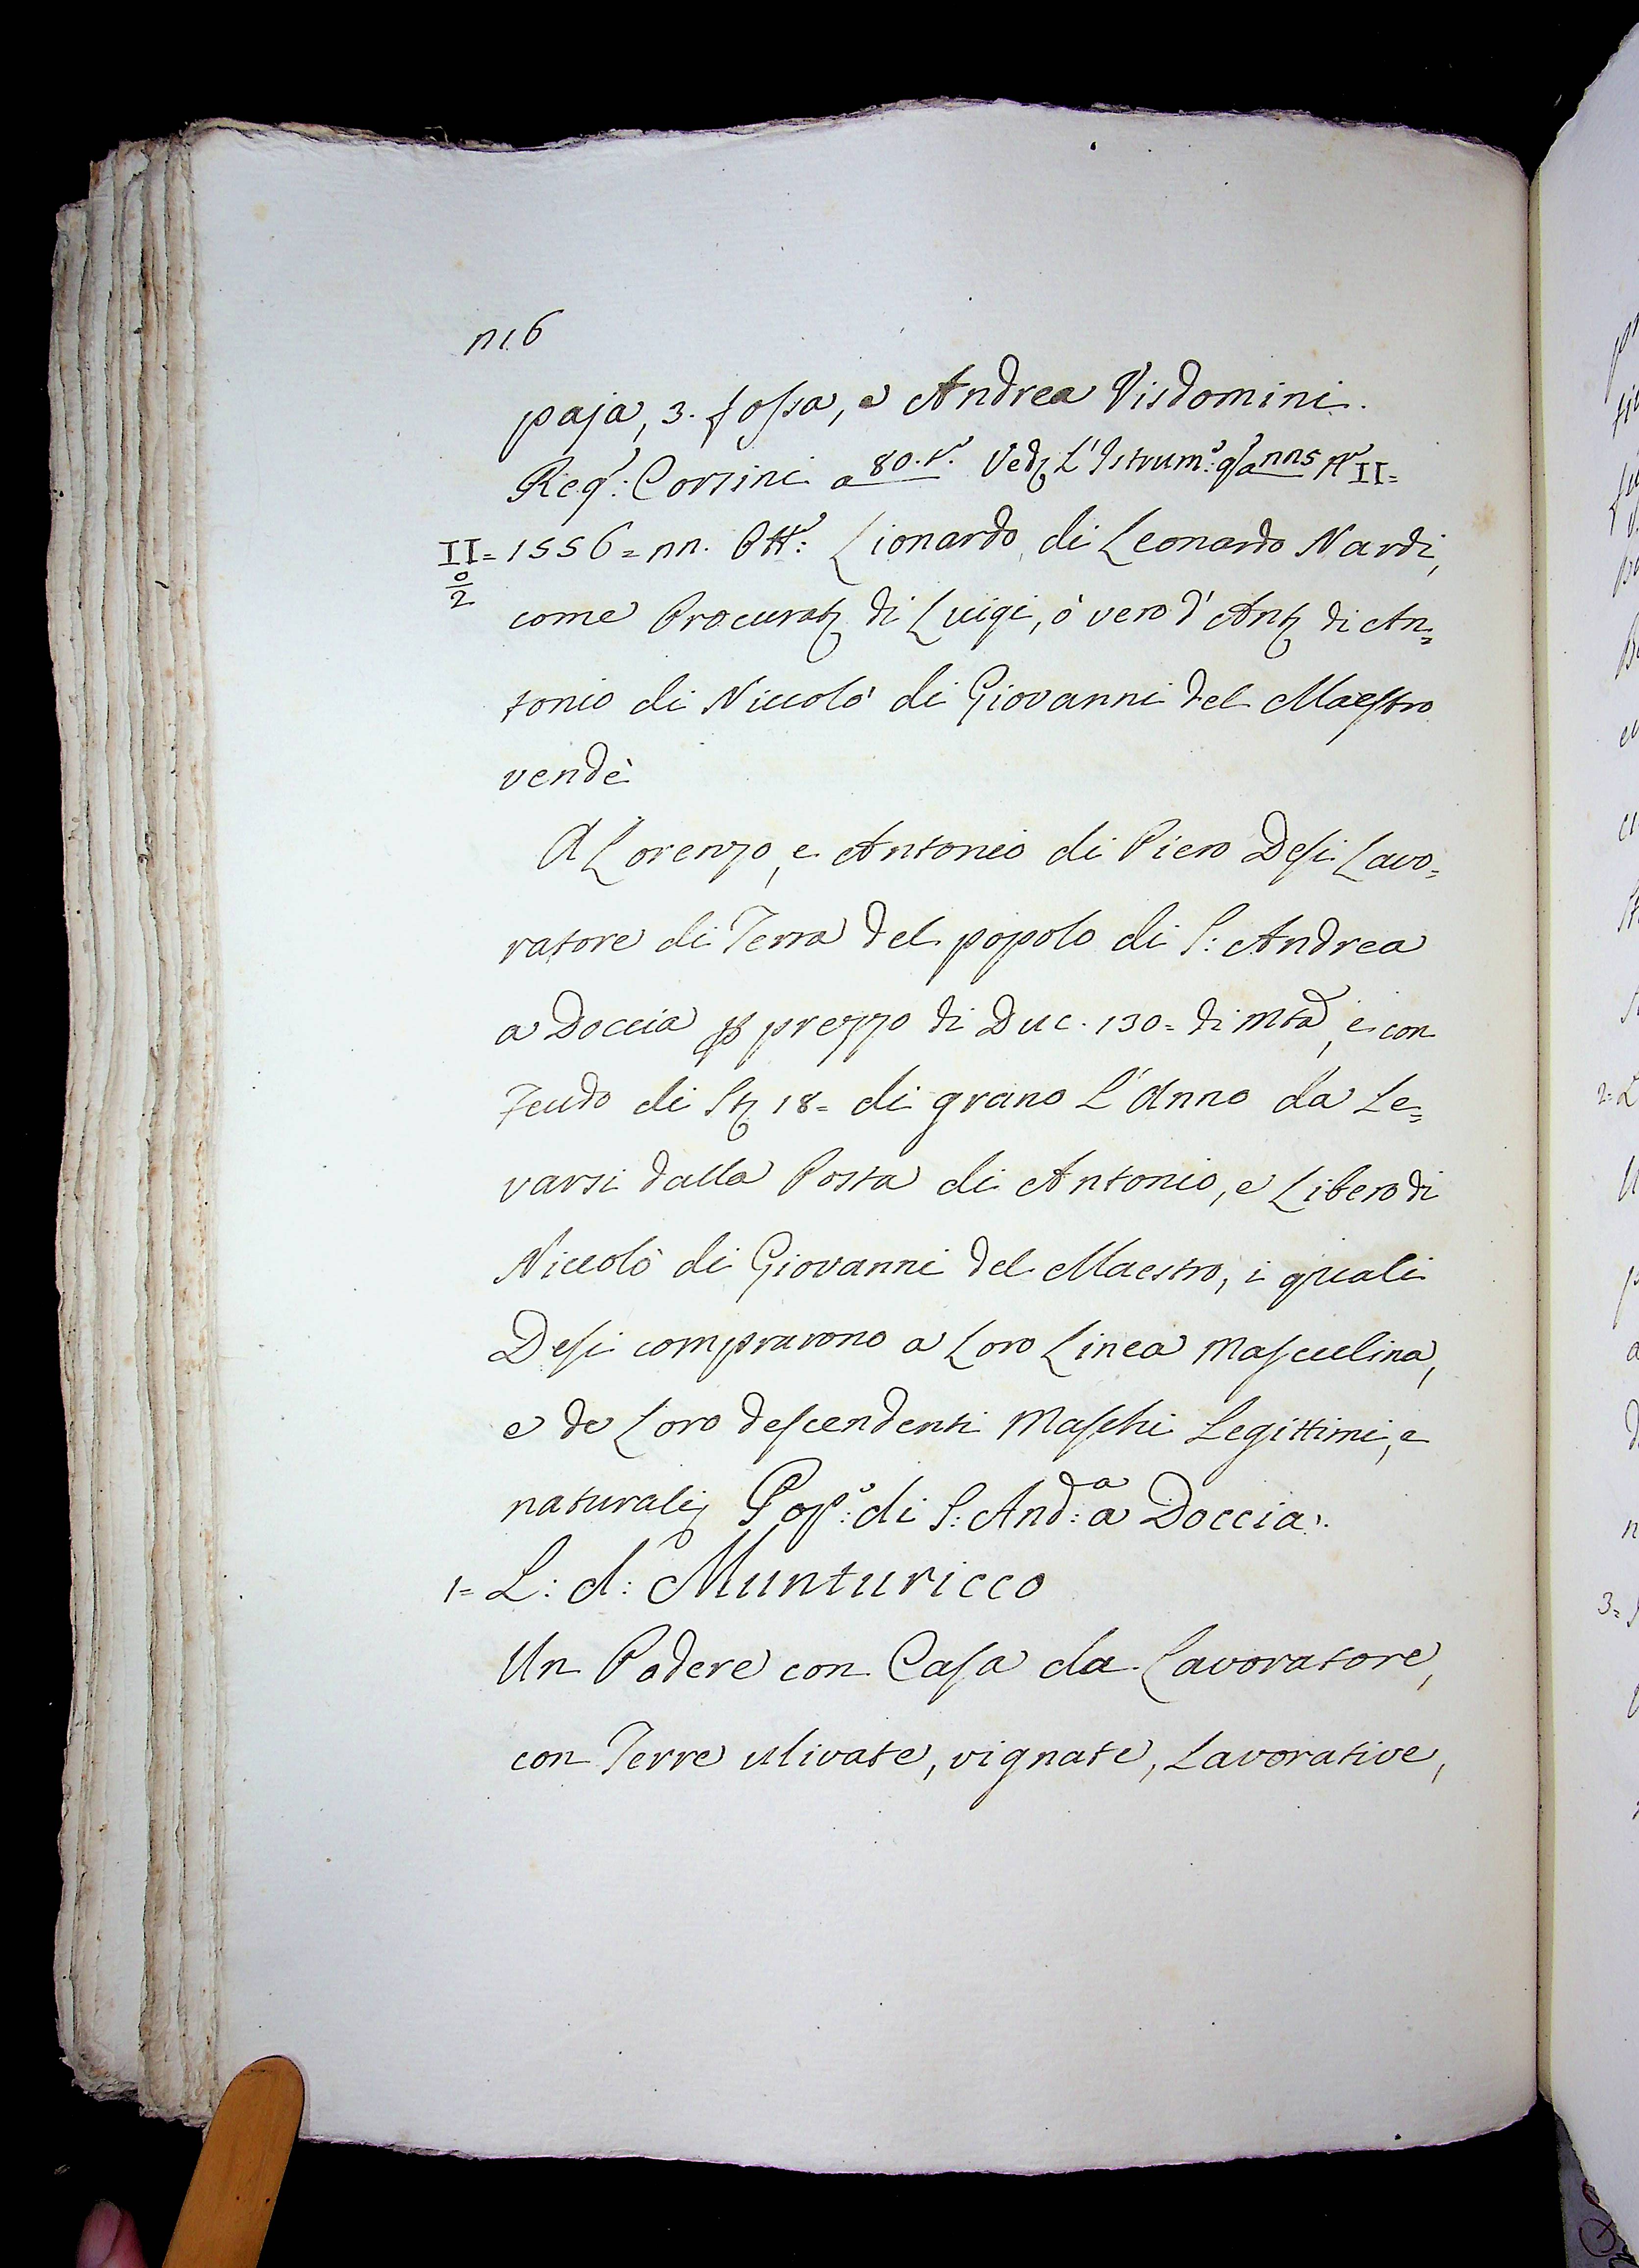 116
paja, 3. fossa, e Andrea Visdomini.
Reg.º: Corsini a 80.t.º Ved. L'Istrum.º: q.º a 115 N.º II=
II= 1556 = 11. Ott.e: Lionardo di Leonardo Nardi,
0/2
come Procurat. di Luigi, ò vero d'Ant. di An=
tonio di Niccolò di Giovanni del Maestro
vendè
A Lorenzo, e Antonio di Piero Desi Lavo=
ratore di Terra del popolo di S: Andrea
a Doccia p prezzo di Duc. 130= di mtà, e con
Feudo di St. 18= di grano L'Anno da Le=
varsi dalla Posta di Antonio, e Libero di
Niccolò di Giovanni del Maestro, i quali
Desi comprarono a Loro Linea Masculina,
e de Loro descendenti Maschi Legittimi, e
naturali; Pop.º: di S: And:a a Doccia.
1= L: d:º Munturicco
Un Podere con Casa da Lavoratore,
con Terre ulivate, vignate, Lavorative,